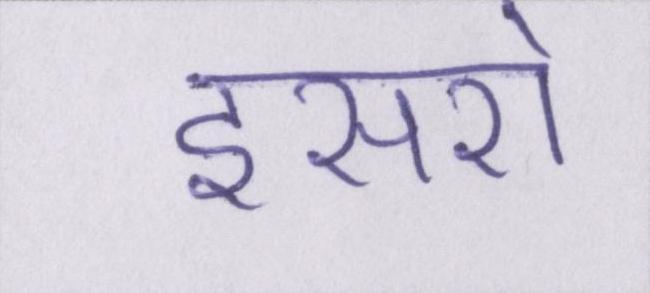 इसरो